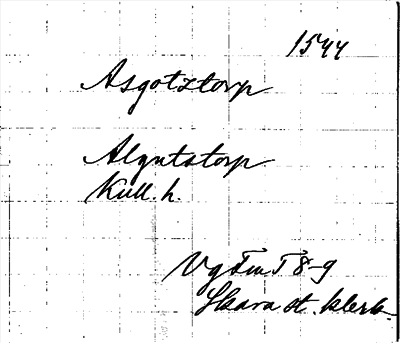 1544
Asgotztorp
Algutstorp
Kull. h.
Vg Fm T 8-9
Skara st. klerk.